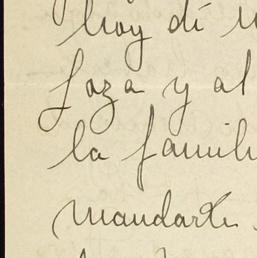 hoy di
Loza y al
la famili
mandarte